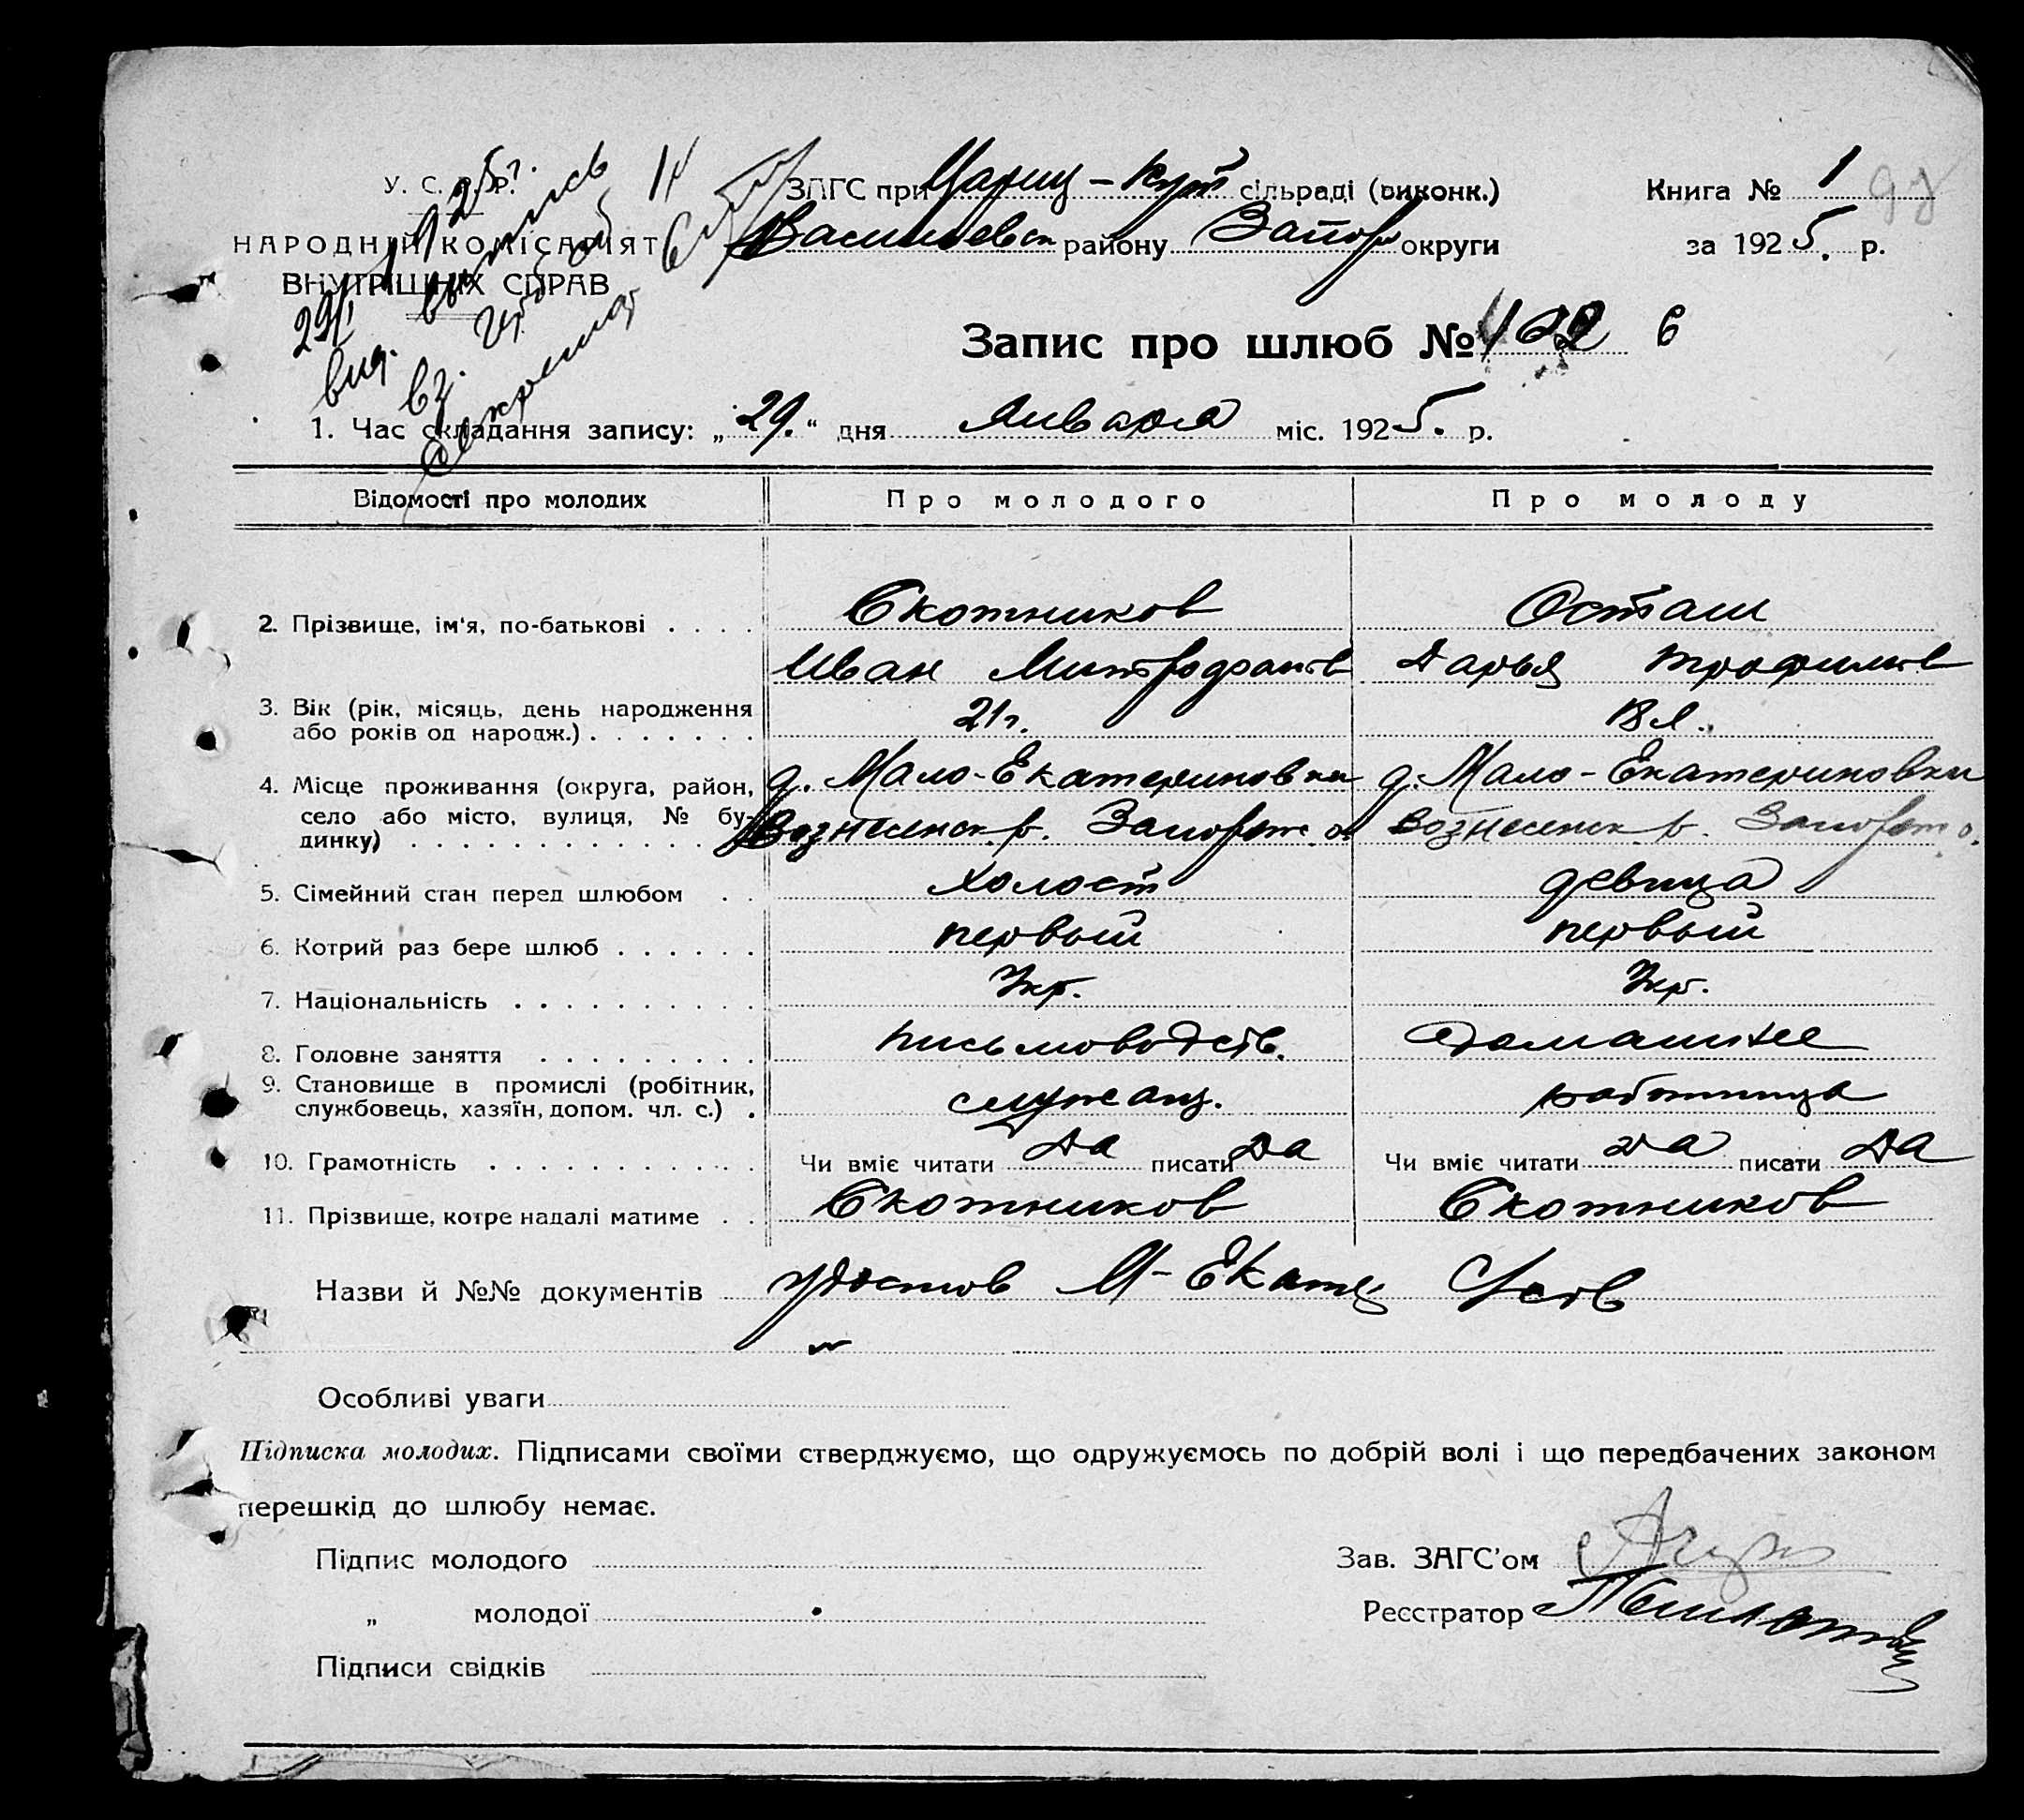 У. С. Р. Р.
НАРОДНІЙ КОМІСАРІЯТ
ВНУТРІШНІХ СПРАВ
29/I 1925 г.
выд. выпись
вз.
Секретарь
ЗАГС при Цариц-Кут сільраді (виконк.)
Васильевск району Запор округи
Книга № 1
за 1925. р.
Запис про шлюб № 122 6
1. Час складання запису: „29.“ дня Января міс. 1925. р.
Відомості про молодих Про молодого Про молоду
2. Прізвище, ім'я, по-батькові . . . . Скотников Осташ
Иван Митрофанов Дарья Трофимов
3. Вік (рік, місяць, день народження 21 г. 18 л.
або років од народж.) . . . . . . .
4. Місце проживання (округа, район, д. Мало-Екатериновки д. Мало-Екатериновки
село або місто, вулиця, № бу- Вознесенск р. Запорож о Вознесенск р. Запорож о.
динку) . . . . . . . . . . . .
5. Сімейний стан перед шлюбом . . холост девица
6. Котрий раз бере шлюб . . . . . . первый первый
7. Національність . . . . . . . . . . Укр. Укр.
8. Головне заняття . . . . . . . . . письмоводств. домашнее
9. Становище в промислі (робітник, служащ. работница
службовець, хазяїн, допом. чл. с.) .
10. Грамотність . . . . . . . . . . . Чи вміє читати да писати да Чи вміє читати да писати да
11. Прізвище, котре надалі матиме . . Скотников Скотников
Назви й №№ документів удостов М-Екатер
Особливі уваги
Підписка молодих. Підписами своїми стверджуємо, що одружуємось по добрій волі і що передбачених законом
перешкід до шлюбу немає.
Підпис молодого Зав. ЗАГС'ом
„ молодої Реєстратор
Підписи свідків